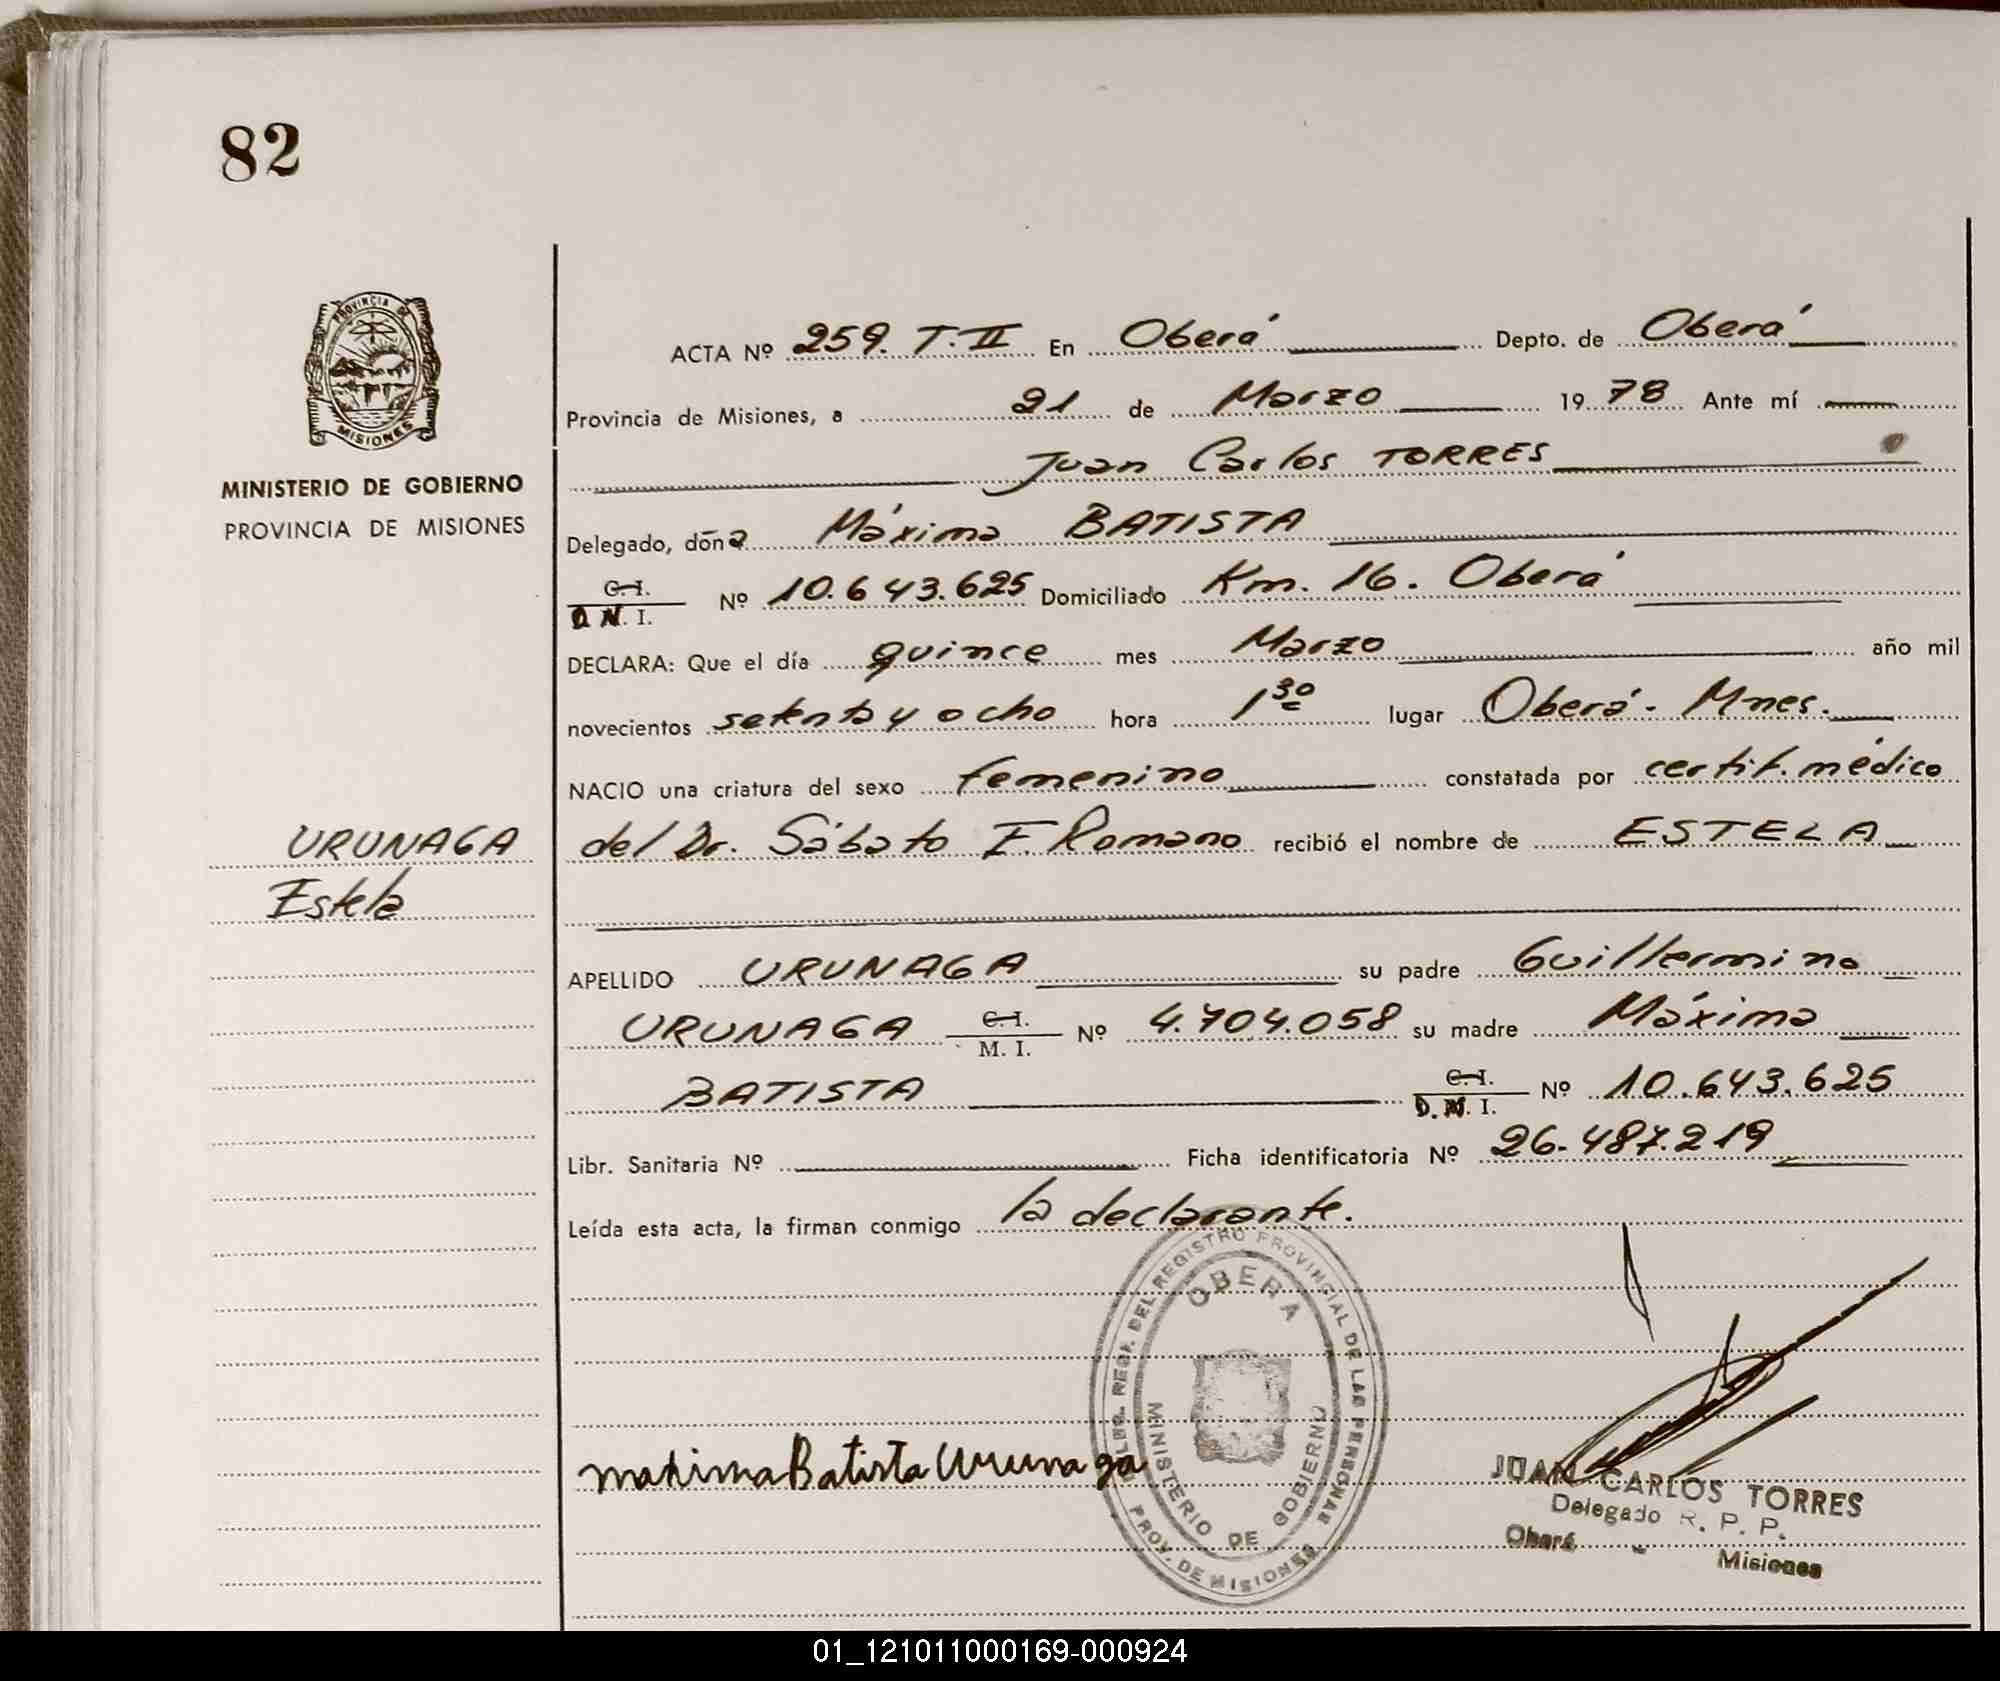 82
PROVINCIA DE
MISIONES
MINISTERIO DE GOBIERNO
PROVINCIA DE MISIONES
URUNAGA
Estela
ACTA Nº 259. T. II En Oberá Depto. de Oberá
Provincia de Misiones, a 21 de Marzo 19 78 Ante mí
Juan Carlos TORRES
Delegado, doña Máxima BATISTA
C. I.
D. N. I. Nº 10.643.625 Domiciliado Km. 16. Oberá
DECLARA: Que el día quince mes Marzo año mil
novecientos setenta y ocho hora 1 30 lugar Oberá - Mnes.
NACIO una criatura del sexo femenino constatada por certif. médico
del Dr. Sábato F. Romano recibió el nombre de ESTELA
APELLIDO URUNAGA su padre Guillermino
URUNAGA C. I. M. I. Nº 4.704.058 su madre Máxima
BATISTA C. I. D. N. I. Nº 10.643.625
Libr. Sanitaria Nº Ficha identificatoria Nº 26.487.219
Leída esta acta, la firman conmigo la declarante.
DEL REGISTRO PROVINCIAL DE LAS PERSONAS
OBERA
MINISTERIO DE GOBIERNO
PROV. DE MISIONES
maxima Batista Urunaga
JUAN CARLOS TORRES
Delegado R. P. P.
Oberá - Misiones
01_121011000169-000924